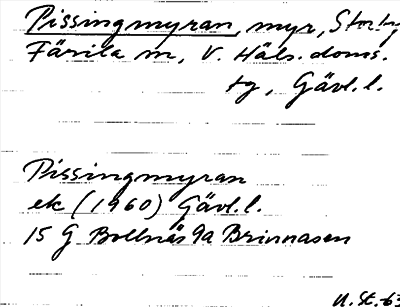 Pissingmyran, myr, Stortj
Färila sn, V. Häls. doms.
tg, Gävl. l.
Pissingmyran
ek (1960) Gävl. l.
15 G Bollnäs 9a Brinnåsen
U. St. 63